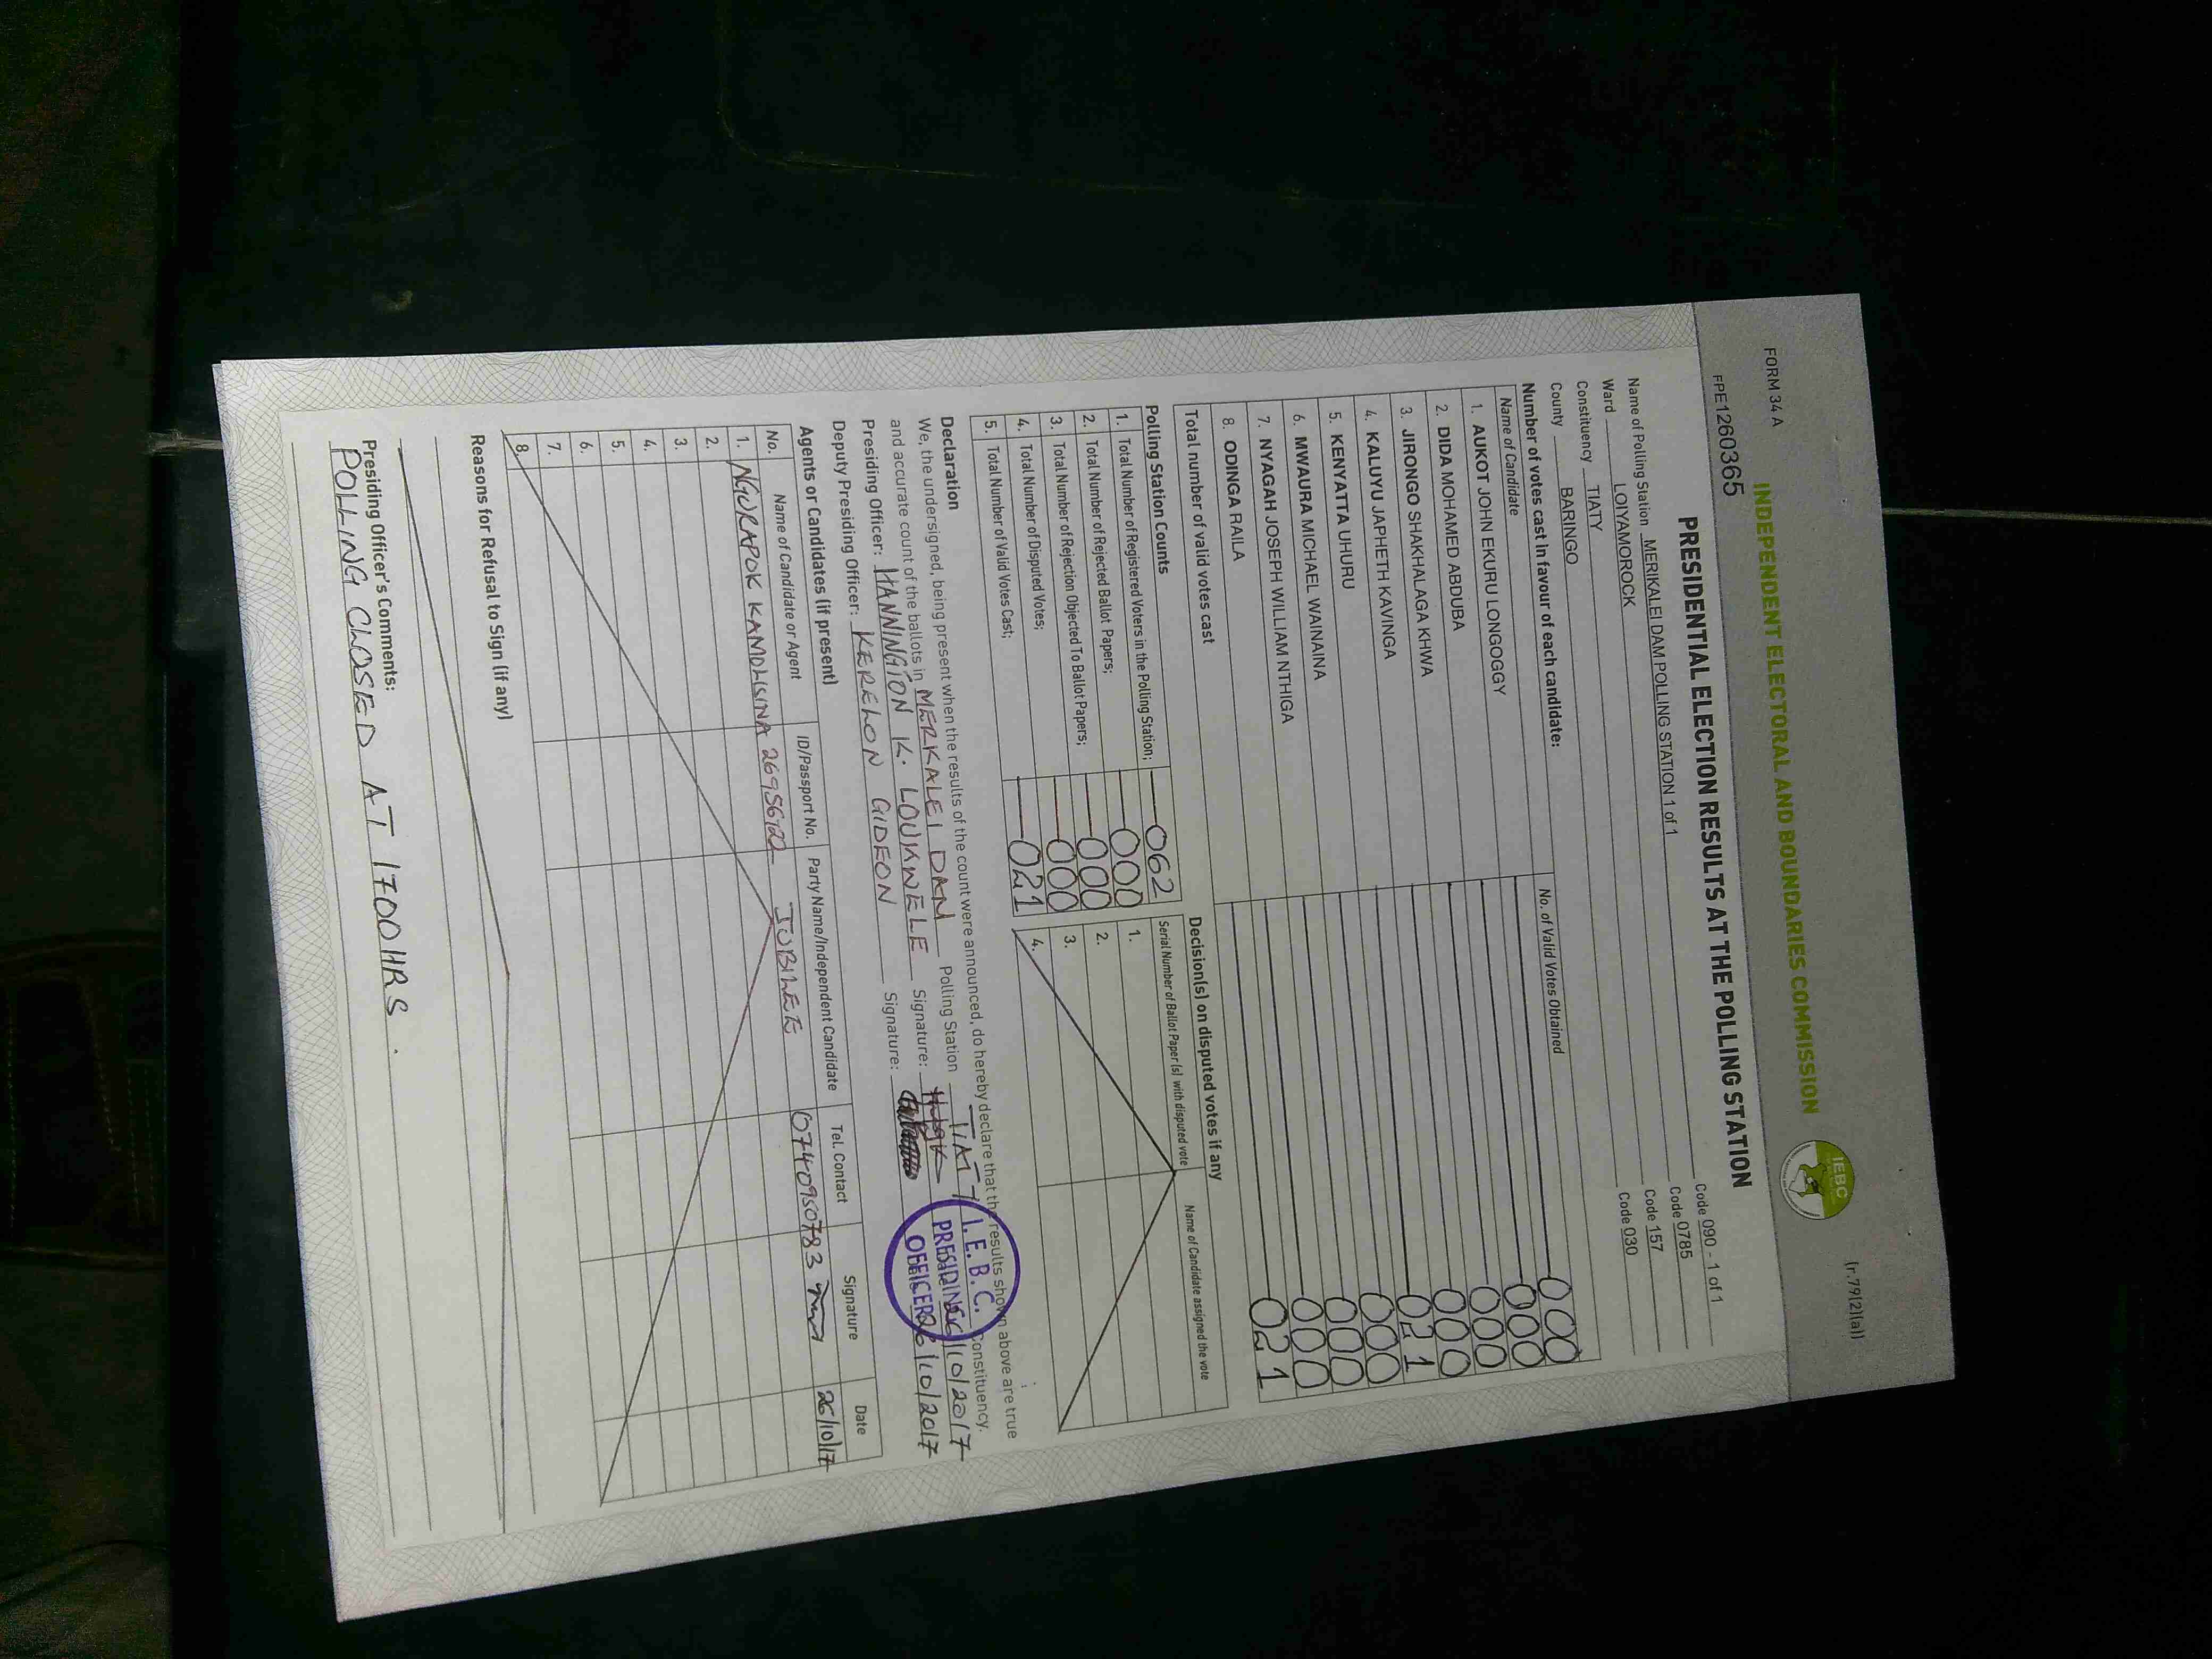 (r.79(2)(a))
FORM 34 A
INDEPENDENT ELECTORAL AND BOUNDARIES COMMISSION
IEBC
FPE1260365
PRESIDENTIAL ELECTION RESULTS AT THE POLLING STATION
Name of Polling Station MERIKALEI DAM POLLING STATION 1 of 1 Code 090 - 1 of 1
Ward LOIYAMOROCK Code 0785
Constituency TIATY Code 157
County BARINGO Code 030
Number of votes cast in favour of each candidate:
Name of Candidate No. of Valid Votes Obtained
1. AUKOT JOHN EKURU LONGOGGY 000
2. DIDA MOHAMED ABDUBA 000
3. JIRONGO SHAKHALAGA KHWA 000
4. KALUYU JAPHETH KAVINGA 000
5. KENYATTA UHURU 021
6. MWAURA MICHAEL WAINAINA 000
7. NYAGAH JOSEPH WILLIAM NTHIGA 000
8. ODINGA RAILA 000
Total number of valid votes cast 021
Polling Station Counts
1. Total Number of Registered Voters in the Polling Station; 062
2. Total Number of Rejected Ballot Papers; 000
3. Total Number of Rejection Objected To Ballot Papers; 000
4. Total Number of Disputed Votes; 000
5. Total Number of Valid Votes Cast; 021
Decision(s) on disputed votes if any
Serial Number of Ballot Paper (s) with disputed vote Name of Candidate assigned the vote
1.
2.
3.
4.
Declaration
We, the undersigned, being present when the results of the count were announced, do hereby declare that the results shown above are true
and accurate count of the ballots in MERKALEI DAM Polling Station TIATY Constituency.
Presiding Officer: HANNINGTON K. LOUKWELE Signature: 26/10/2017
Deputy Presiding Officer: KERELON GIDEON Signature: 26/10/2017
I.E.B.C.
PRESIDING
OFFICER
Agents or Candidates (if present)
No. Name of Candidate or Agent ID/Passport No. Party Name/Independent Candidate Tel. Contact Signature Date
1. NGURAPOK KAMDUSINA 26956722 JUBILEE 0740950783 26/10/17
2.
3.
4.
5.
6.
7.
8.
Reasons for Refusal to Sign (if any)
Presiding Officer's Comments:
POLLING CLOSED AT 1700HRS.